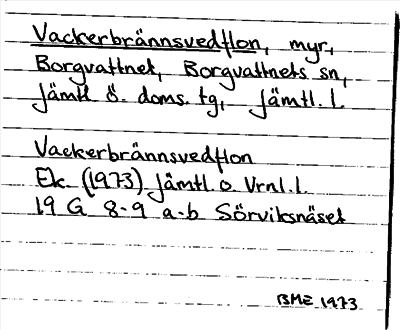 Vackerbrännsvedflon, myr,
Borgvattnet, Borgvattnets sn,
Jämtl Ö. doms. tg, Jämtl. l.
Vackerbrännsvedflon
Ek. (1973) Jämtl. o Vrnl. l.
19 G 8-9 a-b Sörviksnäset
BME 1973